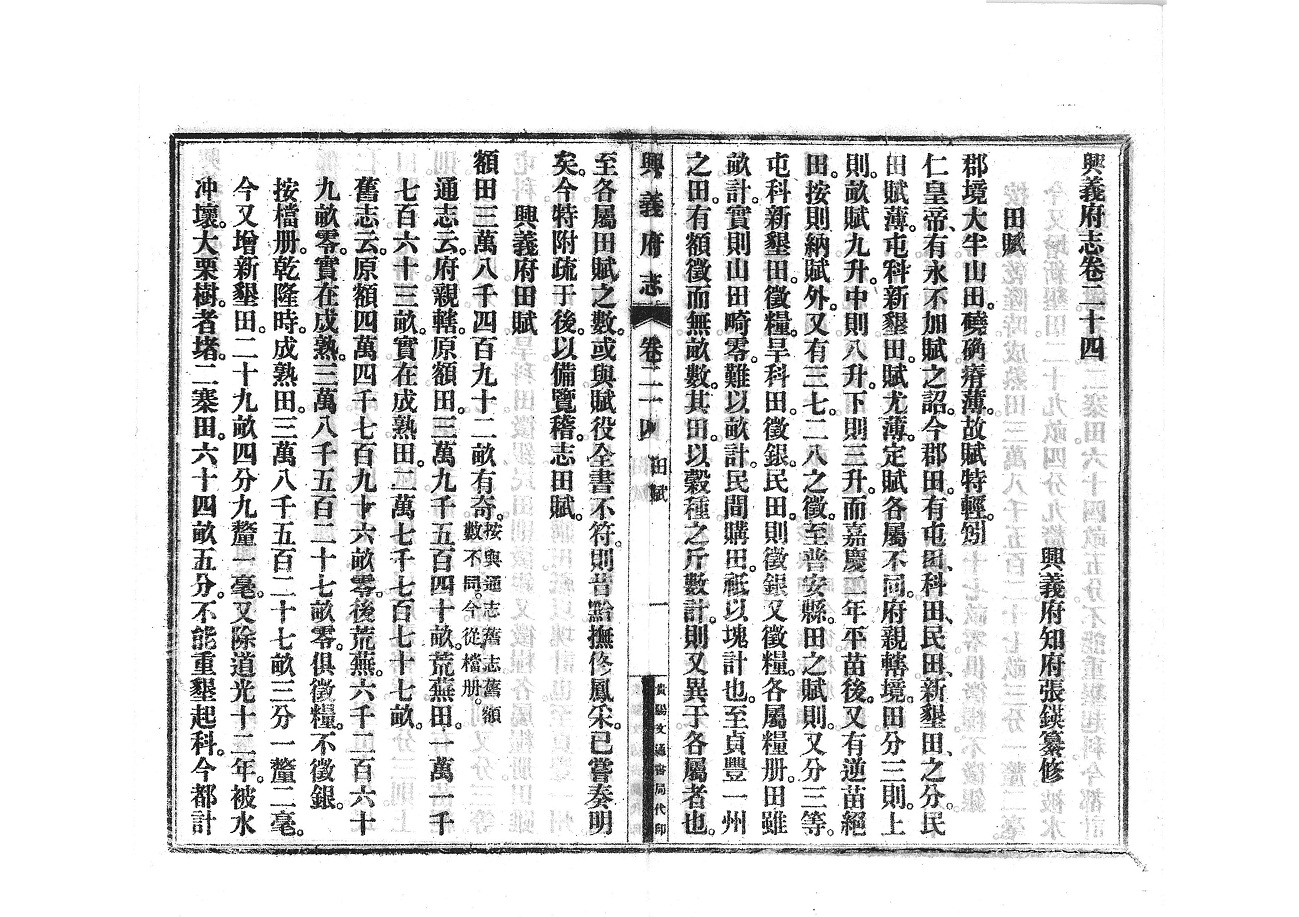 興義府志卷二十四
興義府知府張鍈纂修
田賦
郡境大半山田。磽确瘠薄。故賦特輕。矧
仁皇帝、有永不加賦之詔。今郡田。有屯田、科田、民田、新墾田之分。民
田賦薄。屯科新墾田。賦尤薄。定賦各屬不同。府親轄境。田分三則。上
則。畝賦九升。中則八升。下則三升。而嘉慶二年平苗後。又有逆苗絕
田。按則納賦。外。又有三七二八之徵。至普安縣。田之賦則。又分三等。
屯科新墾田。徵糧。旱科田。徵銀。民田則徵銀又徵糧。各屬糧册。田雖
畝計。實則山田畸零。難以畝計。民間購田。祗以塊計也。至貞豐一州
之田。有額徵而無畝數。其田。以穀種之斤數計。則又異于各屬者也。
興義府志 卷二十四 田賦 一 貴陽文通書局代印
至各屬田賦之數。或與賦役全書不符。則昔黔撫佟鳳采。已嘗奏明
矣。今特附疏于後。以備覽稽。志田賦。
興義府田賦
額田三萬八千四百九十二畝有奇。按與通志舊志舊額數不同。今從檔册。
通志云。府親轄。原額田。三萬九千五百四十畝。荒蕪田。一萬一千
七百六十三畝。實在成熟田。二萬七千七百七十七畝。
舊志云。原額四萬四千七百九十六畝零。後荒蕪。六千二百六十
九畝零。實在成熟。三萬八千五百二十七畝零。俱徵糧。不徵銀。
按檔册。乾隆時。成熟田。三萬八千五百二十七畝三分一釐二毫。
今又增新墾田。二十九畝四分九釐一毫。又除道光十二年。被水
冲壞。大栗樹。者堵。二寨田。六十四畝五分。不能重墾起科。今都計